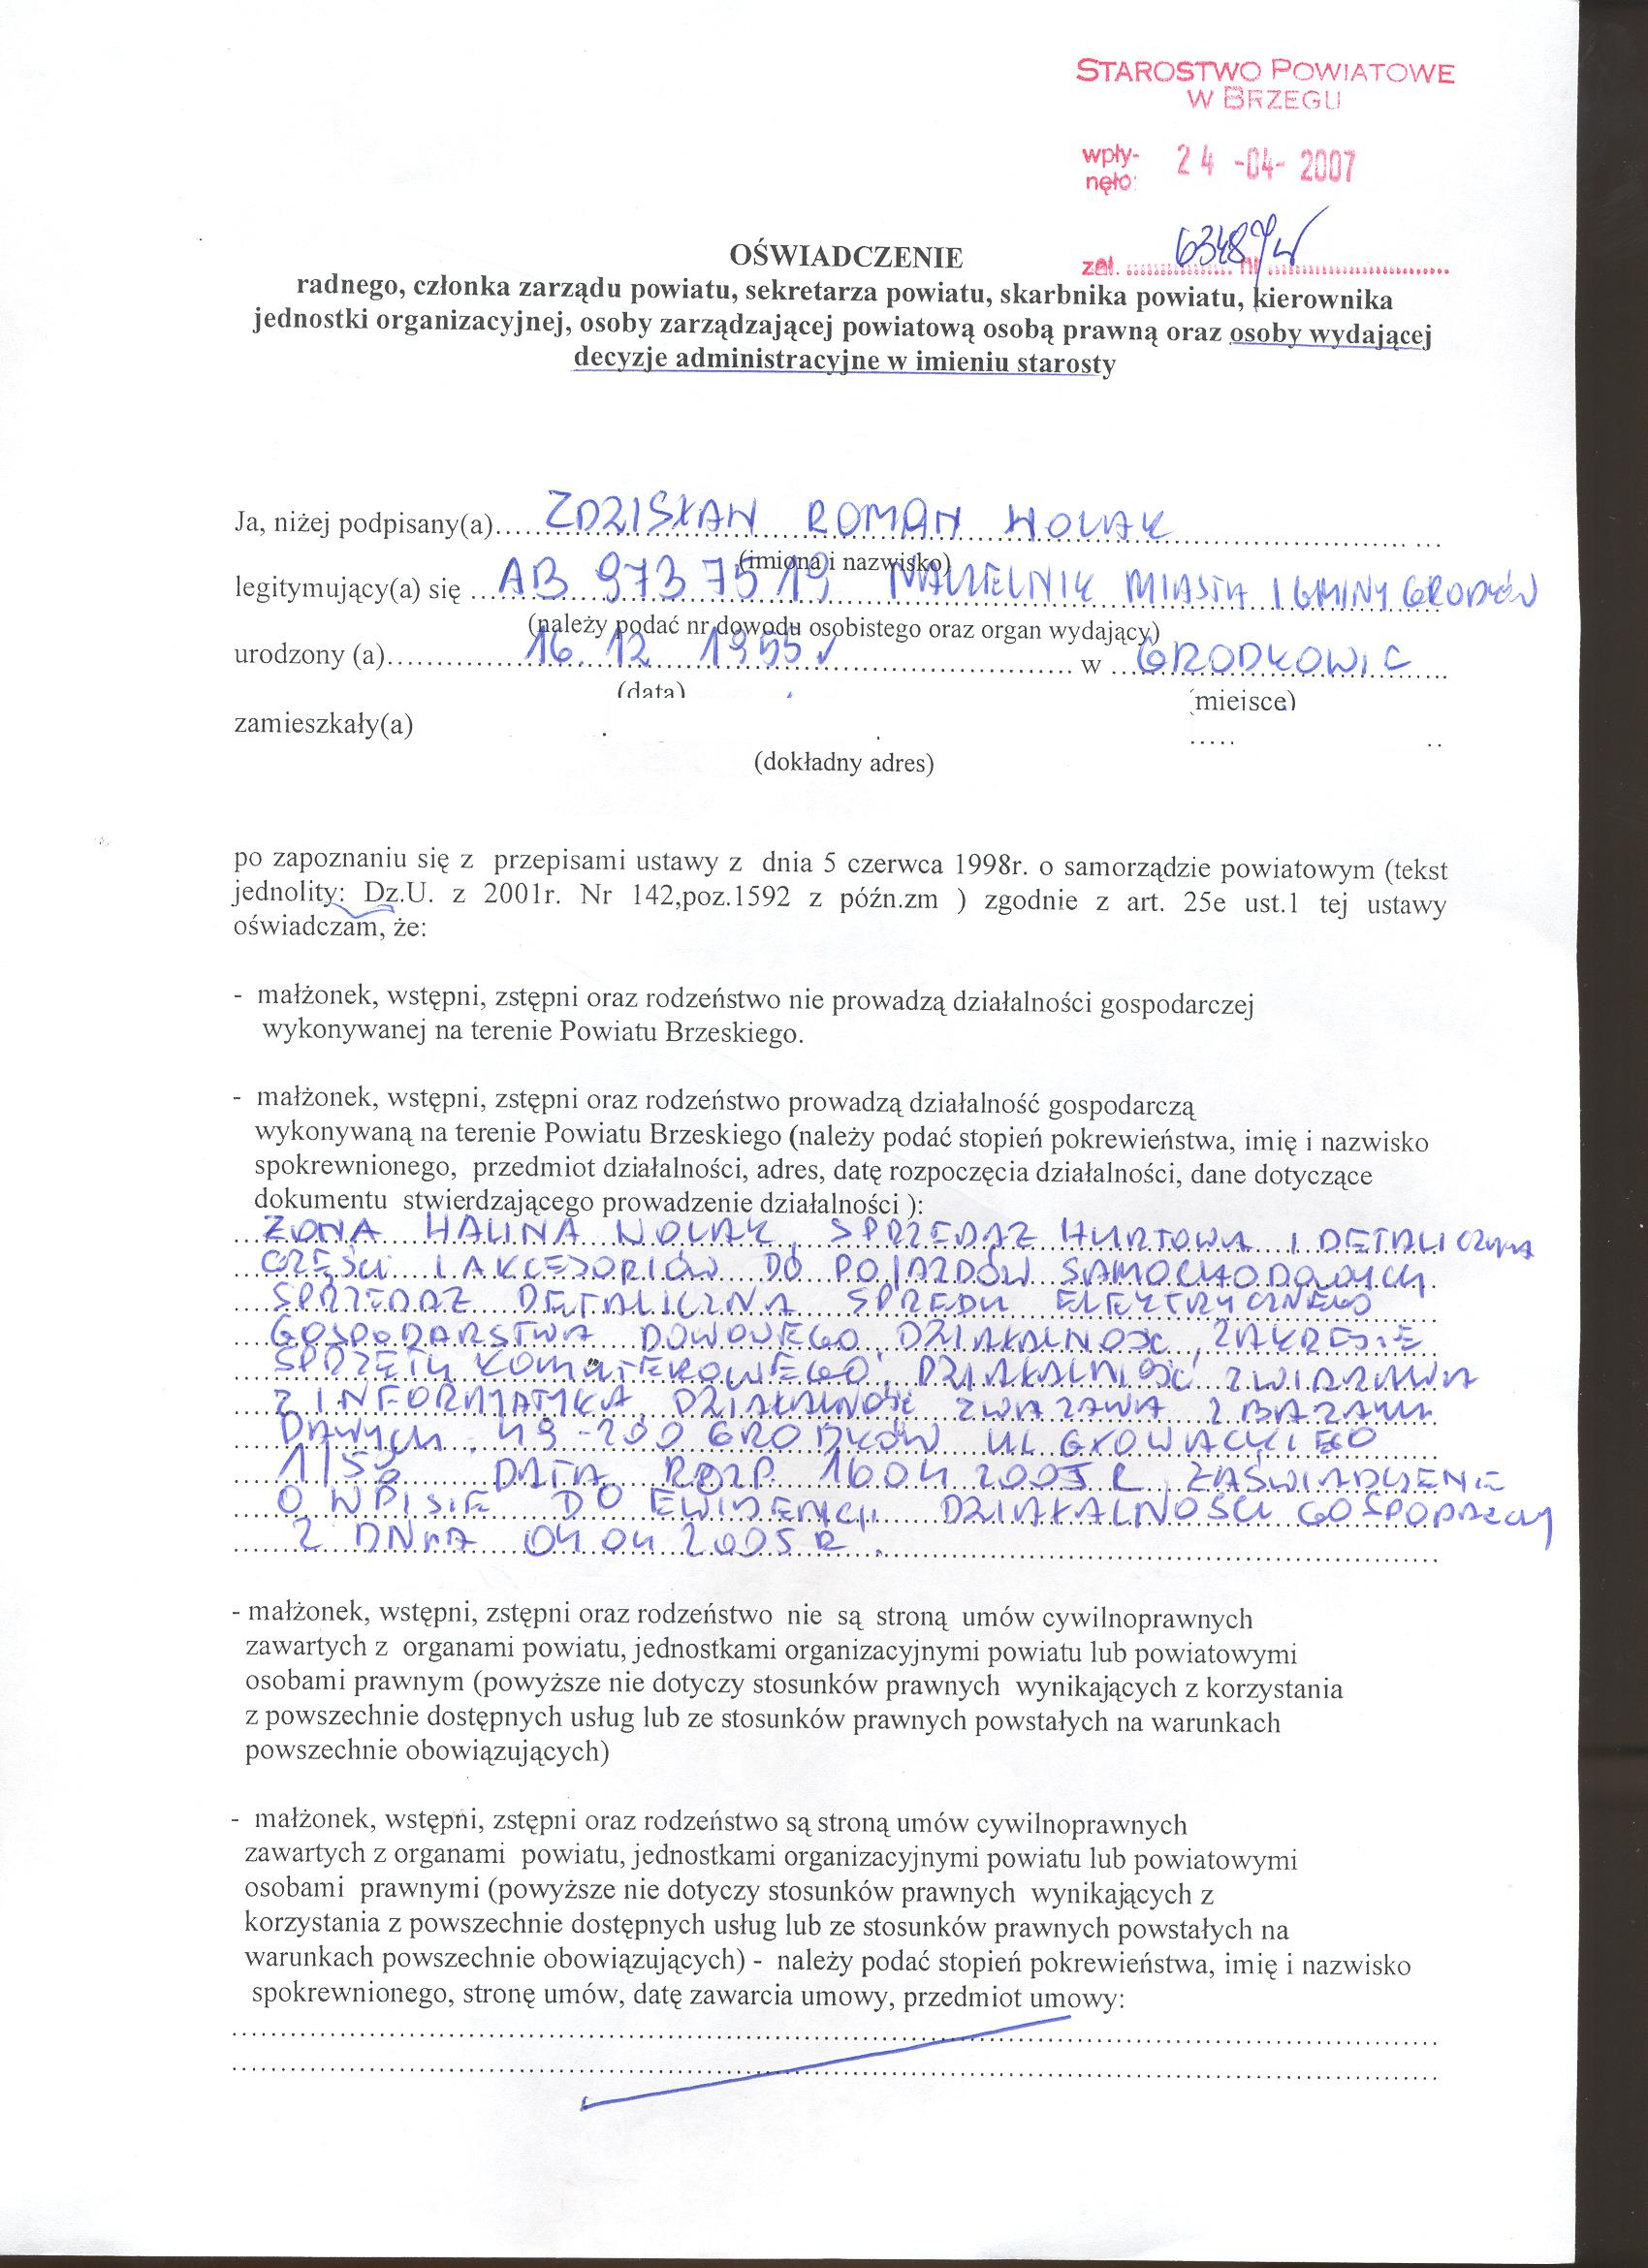 STAROSTWO POWIATOWE
W BRZEGU
wpły- 24 -04- 2007
nęło:
zał. nr
OŚWIADCZENIE
radnego, członka zarządu powiatu, sekretarza powiatu, skarbnika powiatu, kierownika
jednostki organizacyjnej, osoby zarządzającej powiatową osobą prawną oraz osoby wydającej
decyzje administracyjne w imieniu starosty
Ja, niżej podpisany(a)..... ZDZISŁAW ROMAN NOWAK
(imiona i nazwisko)
legitymujący(a) się ... AB 9737519 NACZELNIK MIASTA I GMINY GRODKÓW
(należy podać nr dowodu osobistego oraz organ wydający)
urodzony (a)... 16.12 1955 w ... GRODKOWIE
(data) (miejsce)
zamieszkały(a)
(dokładny adres)
po zapoznaniu się z przepisami ustawy z dnia 5 czerwca 1998r. o samorządzie powiatowym (tekst
jednolity: Dz.U. z 2001r. Nr 142,poz.1592 z późn.zm ) zgodnie z art. 25e ust.1 tej ustawy
oświadczam, że:
- małżonek, wstępni, zstępni oraz rodzeństwo nie prowadzą działalności gospodarczej
wykonywanej na terenie Powiatu Brzeskiego.
- małżonek, wstępni, zstępni oraz rodzeństwo prowadzą działalność gospodarczą
wykonywaną na terenie Powiatu Brzeskiego (należy podać stopień pokrewieństwa, imię i nazwisko
spokrewnionego, przedmiot działalności, adres, datę rozpoczęcia działalności, dane dotyczące
dokumentu stwierdzającego prowadzenie działalności ):
ŻONA HALINA NOWAK, SPRZEDAŻ HURTOWA I DETALICZNA
CZĘŚCI I AKCESORIÓW DO POJAZDÓW SAMOCHODOWYCH
SPRZEDAŻ DETALICZNA SPRZĘDU ELEKTRYCZNEGO
GOSPODARSTWA DOWOWEGO DZIAŁALNOŚC ZAKRESIE
SPRZĘTU KOMUTEROWEGO, DZIAŁALNOŚĆ ZWIĄZANA
Z INFORMATYKĄ, DZIAŁALNOŚĆ ZWĄZANA Z BAZAMI
DANYCH. 49-200 GRODKÓW UL GŁOWACKIEGO
DATA ROZP. 16.04.2005 R, ZAŚWIADCZENIE
O WPISIE DO EWIDENCJI DZIAŁALNOŚCI GOSPODARCZEJ
Z DNIA 04.04.2005 R.
- małżonek, wstępni, zstępni oraz rodzeństwo nie są stroną umów cywilnoprawnych
zawartych z organami powiatu, jednostkami organizacyjnymi powiatu lub powiatowymi
osobami prawnym (powyższe nie dotyczy stosunków prawnych wynikających z korzystania
z powszechnie dostępnych usług lub ze stosunków prawnych powstałych na warunkach
powszechnie obowiązujących)
- małżonek, wstępni, zstępni oraz rodzeństwo są stroną umów cywilnoprawnych
zawartych z organami powiatu, jednostkami organizacyjnymi powiatu lub powiatowymi
osobami prawnymi (powyższe nie dotyczy stosunków prawnych wynikających z
korzystania z powszechnie dostępnych usług lub ze stosunków prawnych powstałych na
warunkach powszechnie obowiązujących) - należy podać stopień pokrewieństwa, imię i nazwisko
spokrewnionego, stronę umów, datę zawarcia umowy, przedmiot umowy: